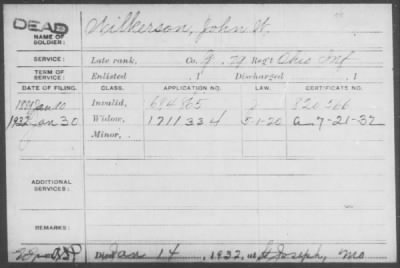 DEAD
NAME OF SOLDIER: Wilkerson, John W.
SERVICE: Late rank, Co. G, 79 Reg't Ohio Inf
TERM OF SERVICE: Enlisted , 1 Discharged , 1
DATE OF FILING. CLASS. APPLICATION NO. LAW. CERTIFICATE NO.
Jan 10 Invalid, 684865 2 820566
1932 Jan 30 Widow, 1711334 5-1-20 a 7-21-32
Minor,
ADDITIONAL SERVICES:
REMARKS:
Died Jan 14, 1932, at St Joseph, Mo